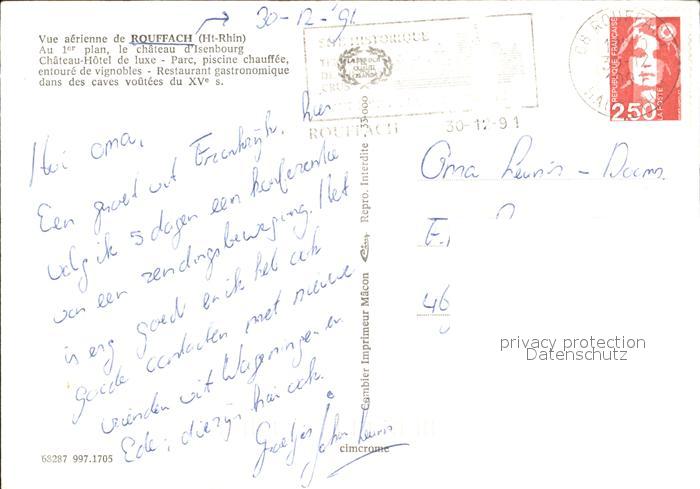 Vue aérienne de ROUFFACH (Ht-Rhin)
Au 1er plan, le château d'Isenbourg
Château-Hôtel de luxe - Parc, piscine chauffée,
entouré de vignobles - Restaurant gastronomique
dans des caves voûtées du XVe s.
30-12-'91
SITE HISTORIQUE
CRUS
ROUFFACH 30-12-91
REPUBLIQUE FRANÇAISE
LA POSTE
2,50
Hoi oma,
Een groet uit Frankrijk, hier
volg ik 5 dagen een konferentie
van een zendingsbeweging. Het
is erg goed en ik heb ook
goede contacten met nieuwe
vrienden uit Wageningen en
Ede; die zijn hier ook.
Groetjes John
Oma
E.
46
Combier Imprimeur Mâcon Cim Repro. Interdite
cimcrome
68287 997.1705
privacy protection
Datenschutz